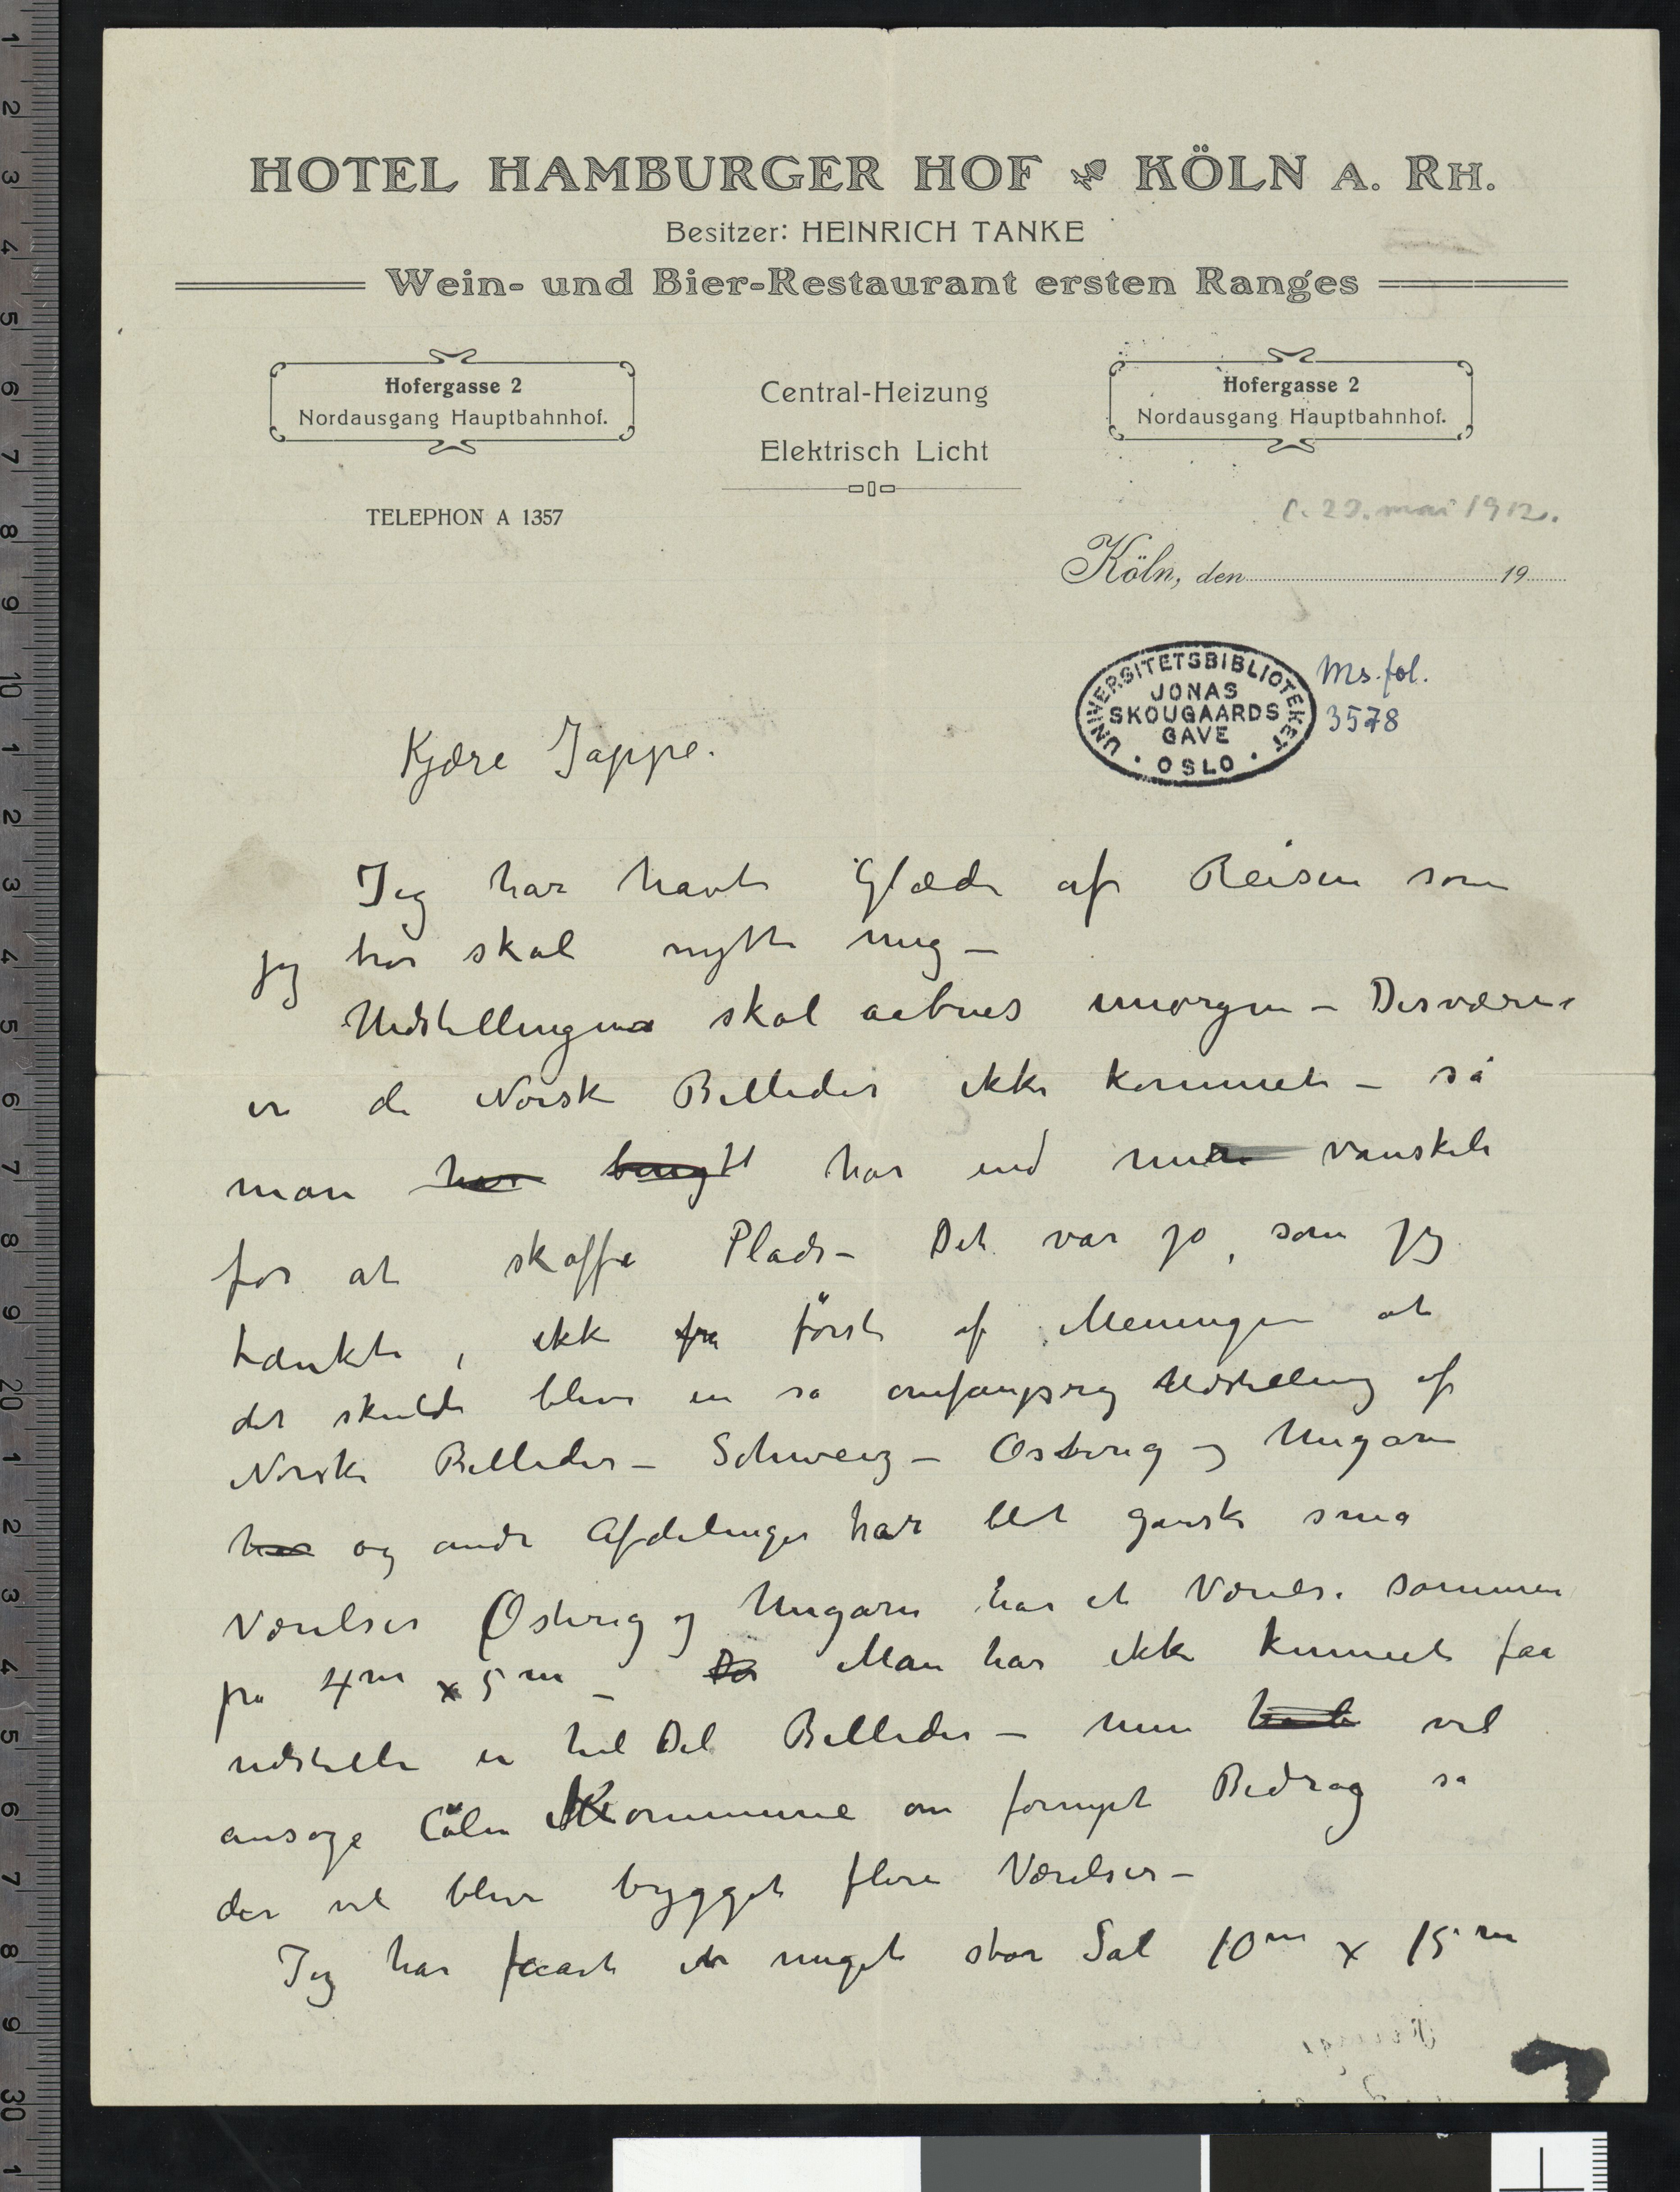 HOTEL HAMBURGER HOF KÖLN A. RH.
Besitzer: HEINRICH TANKE
Wein- und Bier-Restaurant ersten Ranges
Hofergasse 2
Nordausgang Hauptbahnhof.
Central-Heizung
Elektrisch Licht
Hofergasse 2
Nordausgang Hauptbahnhof.
TELEPHON A 1357
c. 22. mai 1912.
Köln, den 19
UNIVERSITETSBIBLIOTEKET
JONAS
SKOUGAARDS
GAVE
OSLO
Ms. fol.
3578
Kjære Jappe.
Jeg har havt Glæde af Reisen som
jeg tror skal nytte mig –
Udstillingen skal aabnes imorgen – Desværre
er de Norske Billeder ikke kommet – så
man har bragt har end mere vanskeli
for at skaffe Plads – Det var jo, som jeg
tænkte, ikke fra først af Meningen at
det skulde blive en så omfangsrig Udstilling af
Norske Billeder – Schweiz – Østerig og Ungarn
har og andre Afdelinger har blet ganske små
Værelser Østerig og Ungarn har et Værelse sammen
på 4m x 5m – Man har ikke kunnet faa
udstille en hel Del Billeder – men vil
ansøge Cöln Kommune om fornyet Bedrag så
der vil blive bygget flere Værelser –
Jeg har faaet en meget stor Sal 10m x 15m